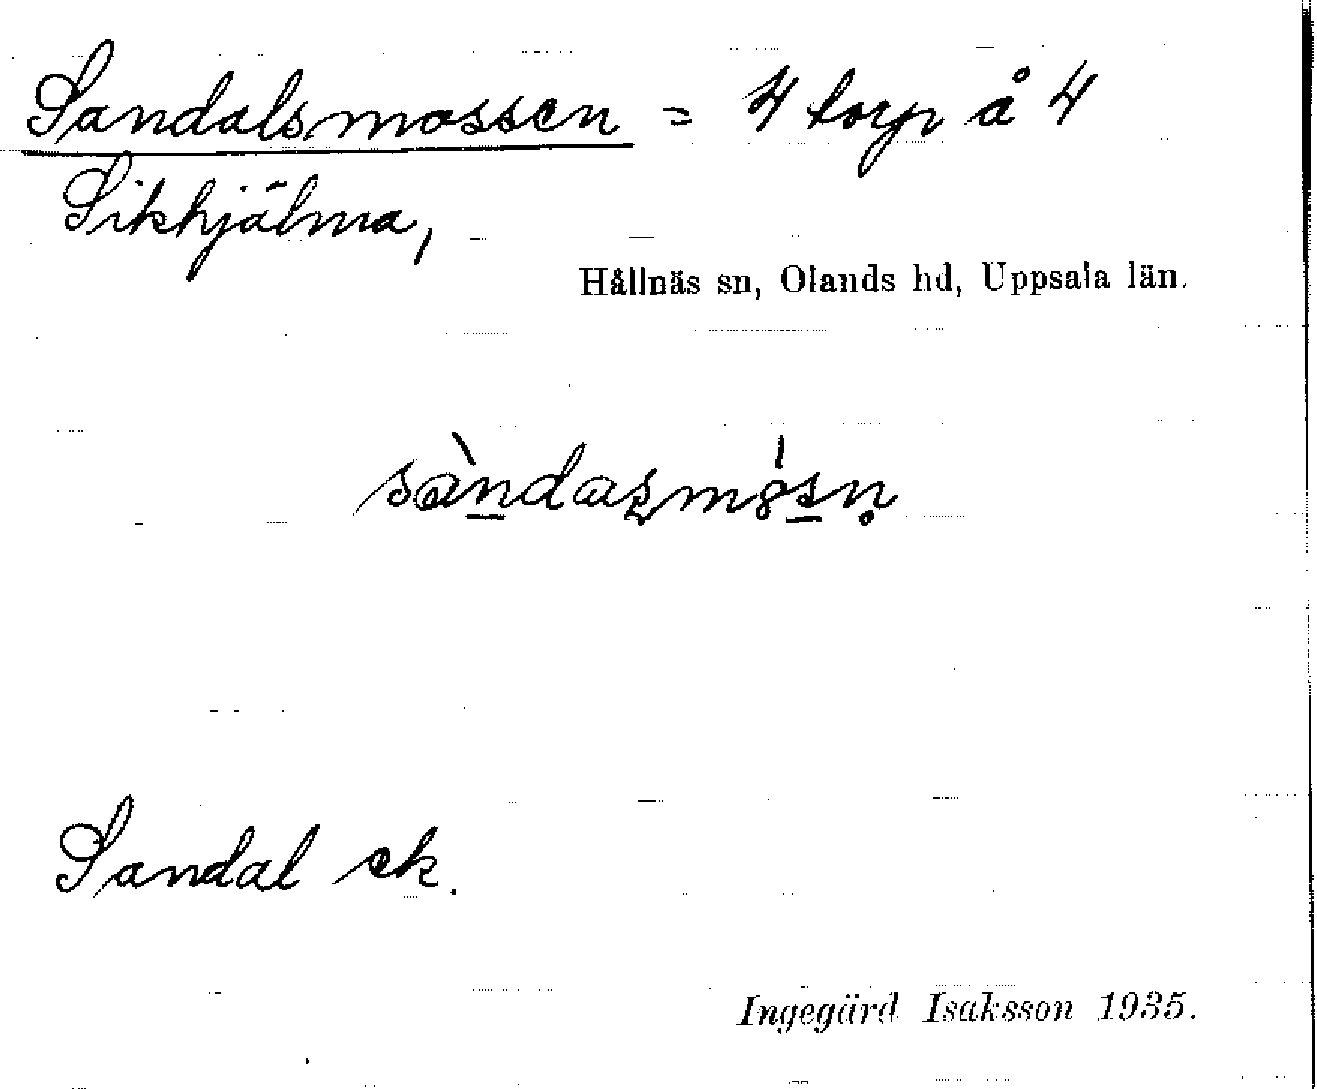 Sandalsmossen = 4 torp å 4
Sikhjälma,
Hållnäs sn, Olands hd, Uppsala län.
Sandal ek.
Ingegärd Isaksson 1935.